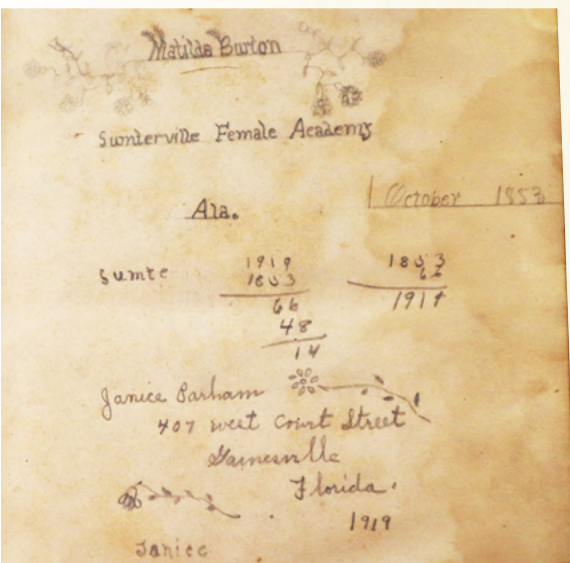 Matilda Burton
Sumterville Female Academy
October 1853
Ala.
Sumte
1919 1853
1853 66
66 1919
48
14
Janice Parham
407 West Court Street
Gainesville
Florida.
1919
Janice